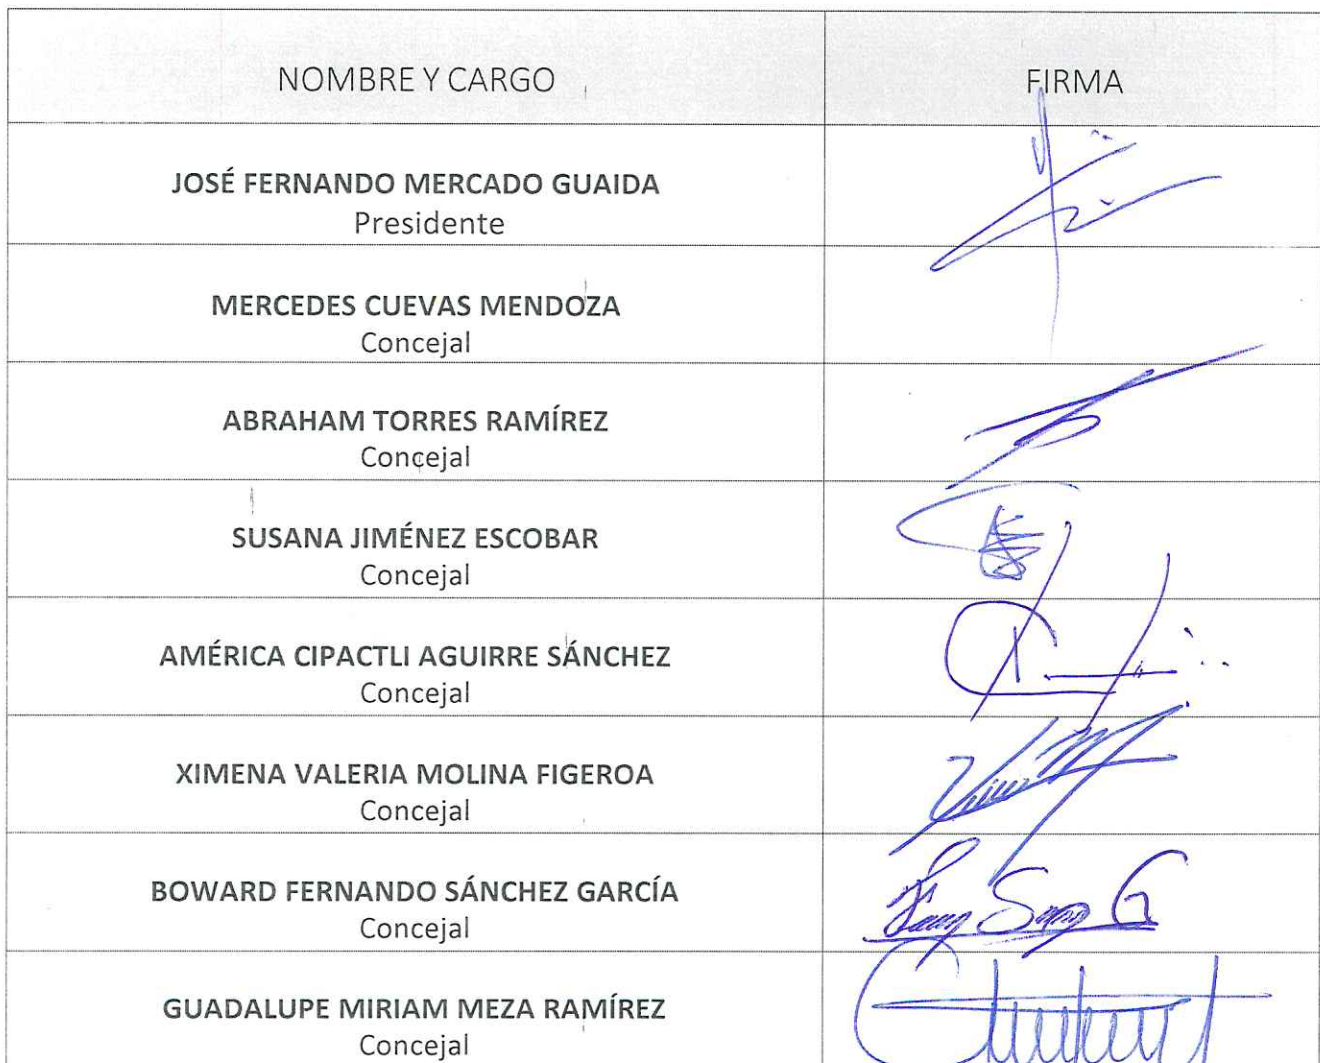 NOMBRE Y CARGO FIRMA
JOSÉ FERNANDO MERCADO GUAIDA
Presidente
MERCEDES CUEVAS MENDOZA
Concejal
ABRAHAM TORRES RAMÍREZ
Concejal
SUSANA JIMÉNEZ ESCOBAR
Concejal
AMÉRICA CIPACTLI AGUIRRE SÁNCHEZ
Concejal
XIMENA VALERIA MOLINA FIGEROA
Concejal
BOWARD FERNANDO SÁNCHEZ GARCÍA
Concejal
GUADALUPE MIRIAM MEZA RAMÍREZ
Concejal